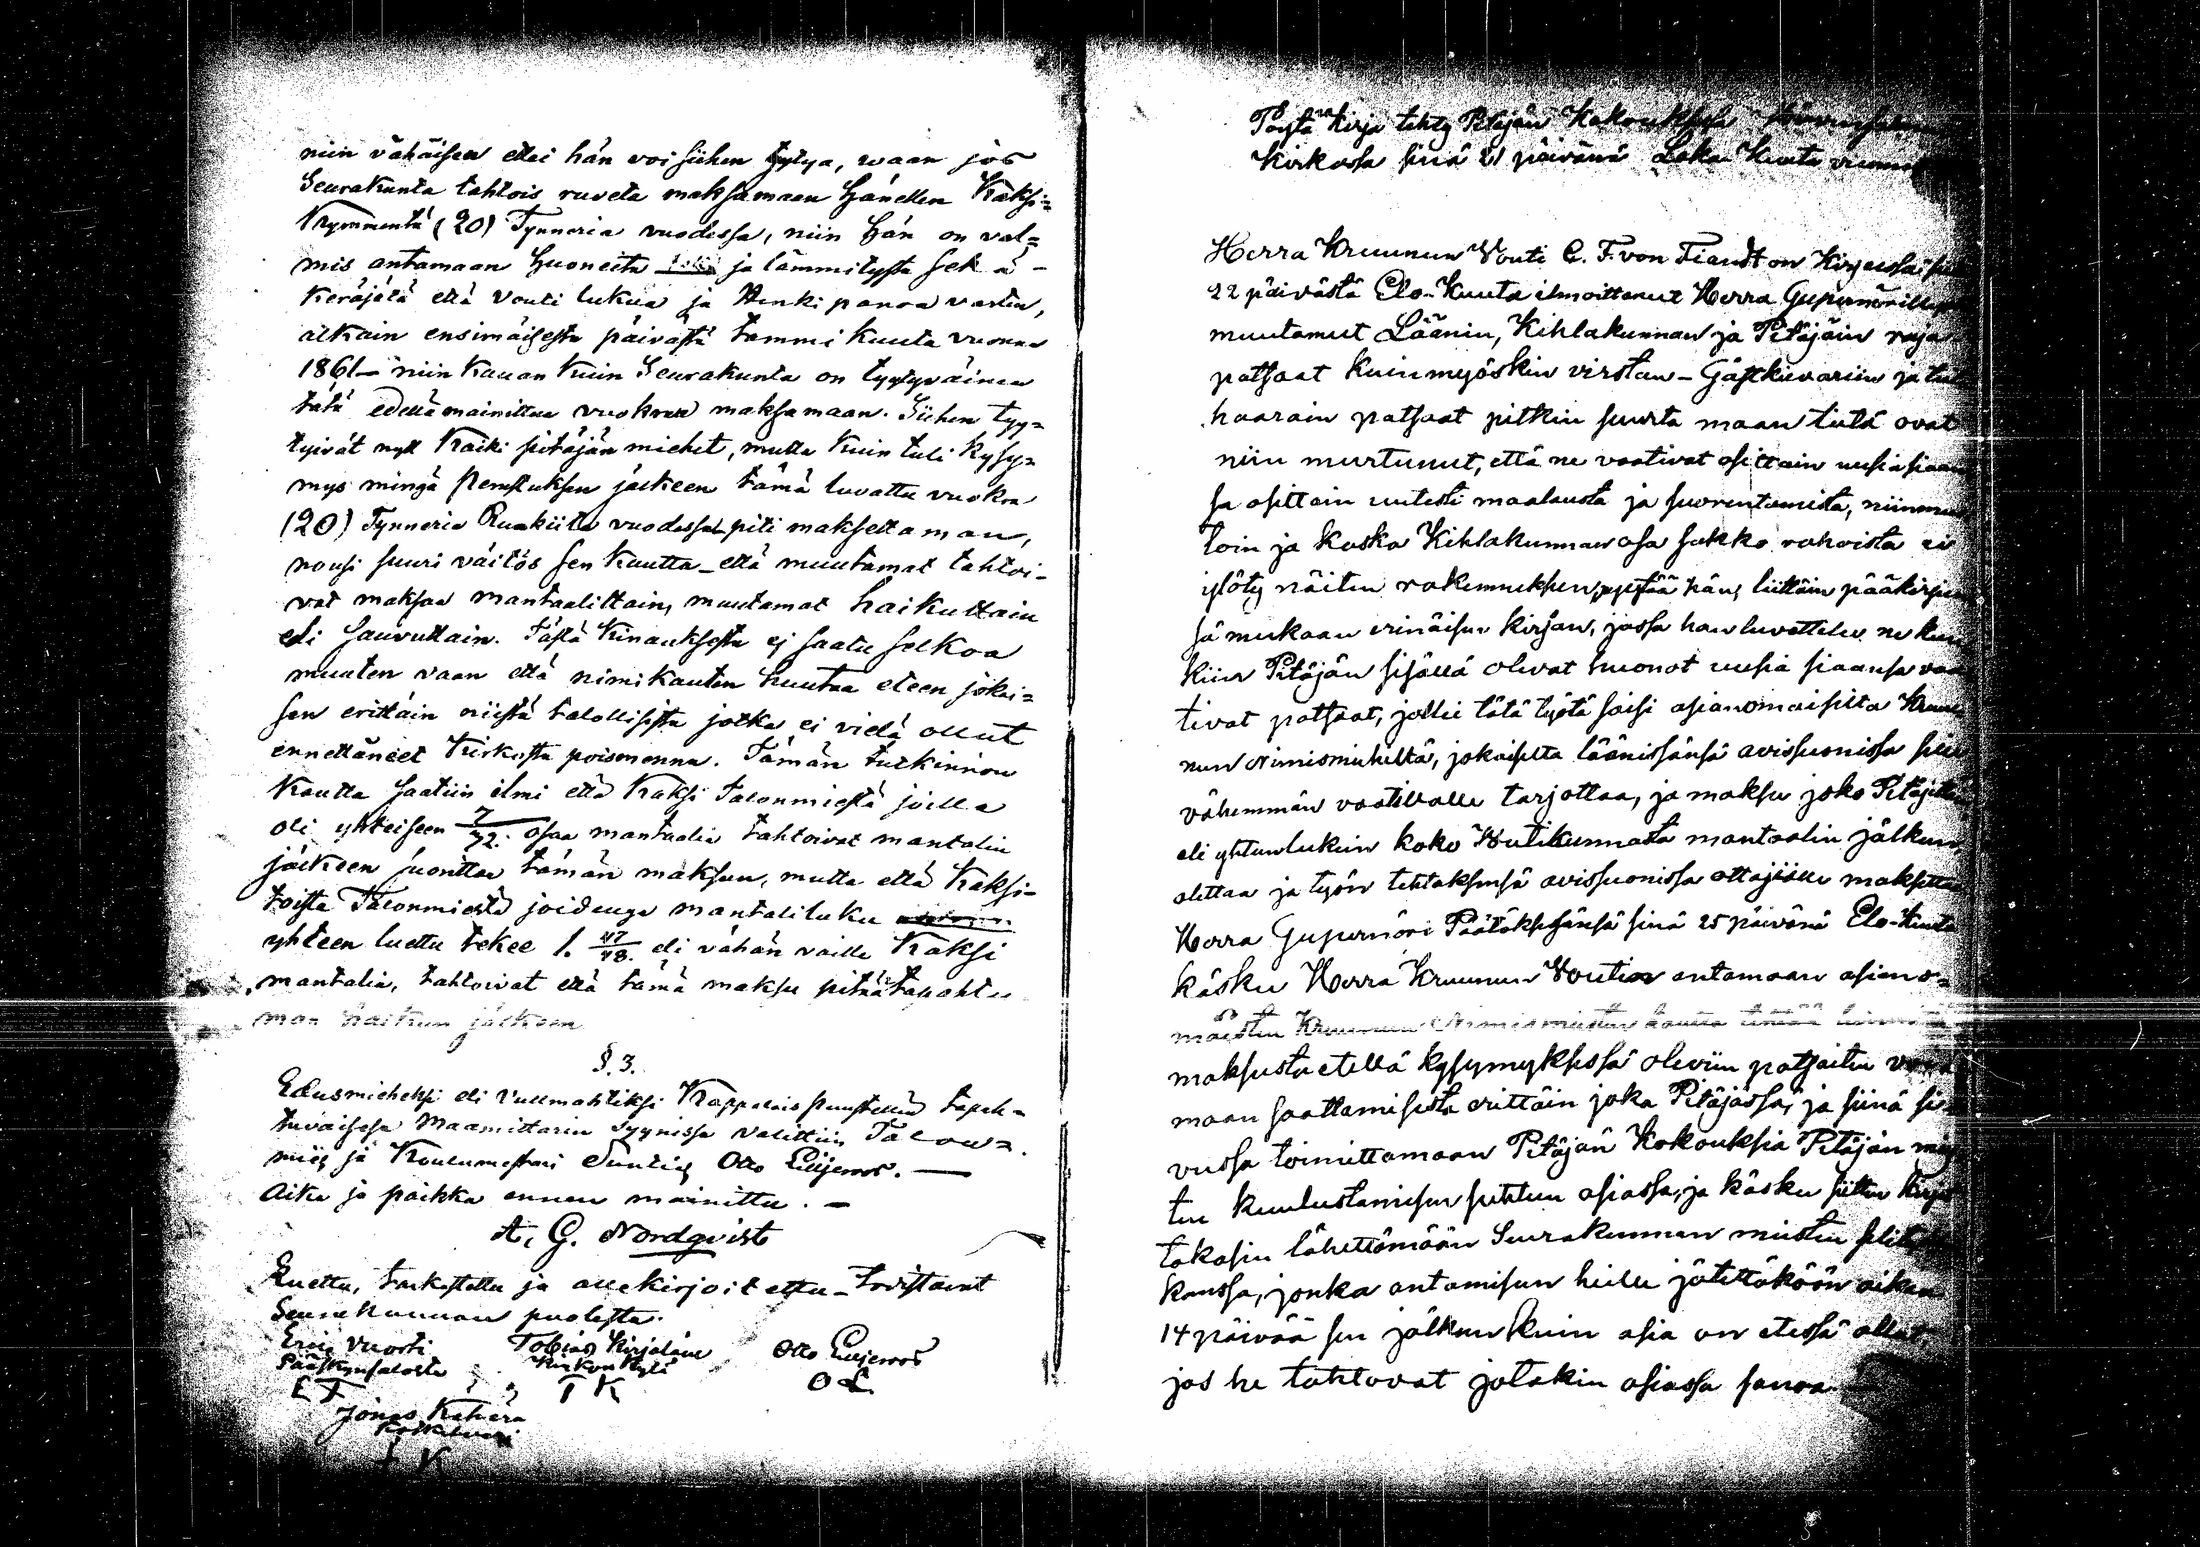 niin vähäisen ettei hän voi siihen tytya, waan jos
Seurakunta tahtois ruveta maksamaan Hänellen Kaksi=
Kymmentä (20) Tynneria vuodessa, niin Hän on val=
mis antamaan Huoneita ja lämmitystä sek ä -
Keräjätä että Vouti lukua ja Henki panoa varten,
alkain ensimäisestä päivästä tammi kuuta vuonna
1861 - niin kauan kuin Seurakunta on tyytyväinen
tätä edellämainittua vuokraa maksamaan. Siihen tyy=
tyivät nyt Kaiki pitäjän miehet, mutta kuin tuli kysy=
mys mingä perustuksen jälkeen tämä luvattu vuokra
(20) Tynneria Ruckiita vuodessa piti maksettaman,
nousi suuri väitös sen kautta - että muutamat tahtoi-
vat maksaa mantaalittain, muutamat haikuttain
eli Sauvuttain. Tästä Kinauksesta ej saatu selkoa
muuten vaan että nimikauten huutaa eteen jokai=
sen erittäin niistä talollisista jotka ei vielä ollut
ennettäneet Kirkosta poismenna. Tämän tutkinnon
Kautta saatiin ilmi että Kaksi talonmiestä joilla
oli yhteiseen 7/72. osaa mantaalia tahtoivat mantalin
jälkeen suoritta tämän maksun, mutta että Kaksi-
toista Talonmiestä joidenga mantaliluku
yhteen luettu tekee 1. 47/48. eli vähän vaille Kaksi
mantalia, tahtoivat että tämä maksu pitää tapahtu
man haikun jälkeen
§. 3.
Edusmieheksi eli Vullmahtiksi Kappalais puustellid tapah=
tuvaisessa Maamittarin Syynissa valittiin Talon=
mies ja Koulumestari Otto Liljeroos. -
Aika ja paikka ennen mainittu. -
A, G. Nordqvist
Luettu, tarkastettu ja allekirjoitettu - todistavat
Seurakunnan puolesta.
Eric Vuosti Tobias Kirjalain Otto Liljeroos
Pääskynsalosta Kirkon Kylä
E F T K O L
Jonas Kähärä
J K
Pöytä Kirja tehty Pitäjän Kokouksesa
Kirkossa sinä 21 päivänä Loka Kuuta
Herra Kruunun Vouti C. F. von Fiandt on Kirjeissä
22 päivästä Elo-Kuuta ilmoittanut Herra Gupernörille
muutamat Läänin, Kihlakunnan ja Pitäjäin raja
patsaat kuinmyöskin virstan - Gästkievariin ja tien
haarain patsaat pitkin suurta maan tietä ovat
niin murtunut, että ne vaativat osittain uusia siaan
sa osittain uutesti maalausta ja suorentamista, niinmuo
toin ja koska Kihlakunnan osa sakko rahoista ei
ylöty näiten rakennuksen hän, liittäin pääkirjan
sä mukaan erinäisen kirjan, jossa hän luvettelee ne kun
kiin Pitäjän sisällä olevat huonot uusia siaansa vaa
tivat patsaat, jollei tätä työtä saisi asianomaisilta Kruu
nun Nimismieheltä, jokaiselta läänissänsä avissuonissa
vähemmän vaatevalle tarjottaa, ja maksu joko Pitäjittäin
eli yhtenlukein koko Voutikunnasta mantaalin jälkeen
olettaa ja työn tehtaksensä avissuonissa ottajiille maksettaa
Herra Gupernöri Päätöksesänsä sinä 25 päivänä Elo-Kuuta
käsku Herra Kruunun Voutin antamaan asiano=
maisten Kruunun Nimismiesten kautta
maksusta etellä kysymyksessä olevien patsaiten
maan saattamisesta erittäin joka Pitäjässä, ja siinä
vussa toimittamaan Pitäjän Kokouksia Pitäjän
ten kuulustamisen suhteen asiassa, ja käsku sitten kirja
takasin lähettämään Seurakunnan miesten
kanssa, jonka antamisen heille jätettäköön aikaa
14 päivää sen jälkeen kuin asia on etessä ollut
jos he tahtovat jotakin asiassa sanoa